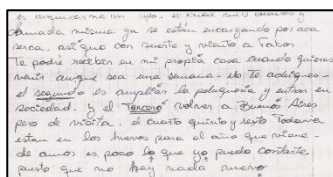 es arquitecto me un
llamada misma ya se están encargando por acá
cerca. así que con suerte y viento a favor.
Te podré recibir en mi propia casa cuando quieras
venir aunque sea una semana - No te achiques -
el segundo es ampliar la peluquería y entrar en
sociedad. y el Tercero volver a Buenos Aires
pero de visita. el cuarto quinto y sexto Todavía
estan en los huevos para el año que viene -
de amos es poco lo que yo puedo contarte
puesto que no hay nada nuevo